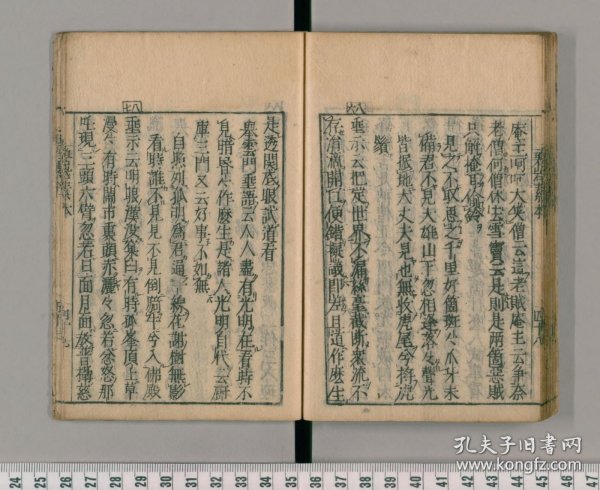 庵主呵呵大笑僧云這老賊庵主云爭奈
老僧何僧休去雪竇云是則是兩箇惡賊
只解掩耳偷鈴
見之不取思之千里好箇斑々爪牙未
備君不見大雄山下忽相逢落々聲光
皆振地大丈夫見也無收虎尾兮捋虎
鬚
八六
垂示云把定世界不漏絲毫截斷衆流不
存涓滴開口便錯擬議即差且道作麼生
是透關底眼試道看
舉雲門垂語云人人盡有光明在看時不
見暗昏々作麼生是諸人光明自代云厨
庫三門又云好事不如無
自照列孤明爲君通一線花謝樹無影
看時誰不見見不見倒騎牛兮入佛殿
八七
垂示云明眼漢沒窠臼有時孤峯頂上草
漫々有時鬧市裏頭赤灑々忽若忿怒那
吒現三頭六臂忽若日面月面放普攝慈
孔夫子旧书网
www.kongfz.com
24 23 22 21 20 19 18 17 16 15 14 13 12 11 10
30 31 32 33 34 35 36 37 38 39 40 41 42 43 44 45 46 47